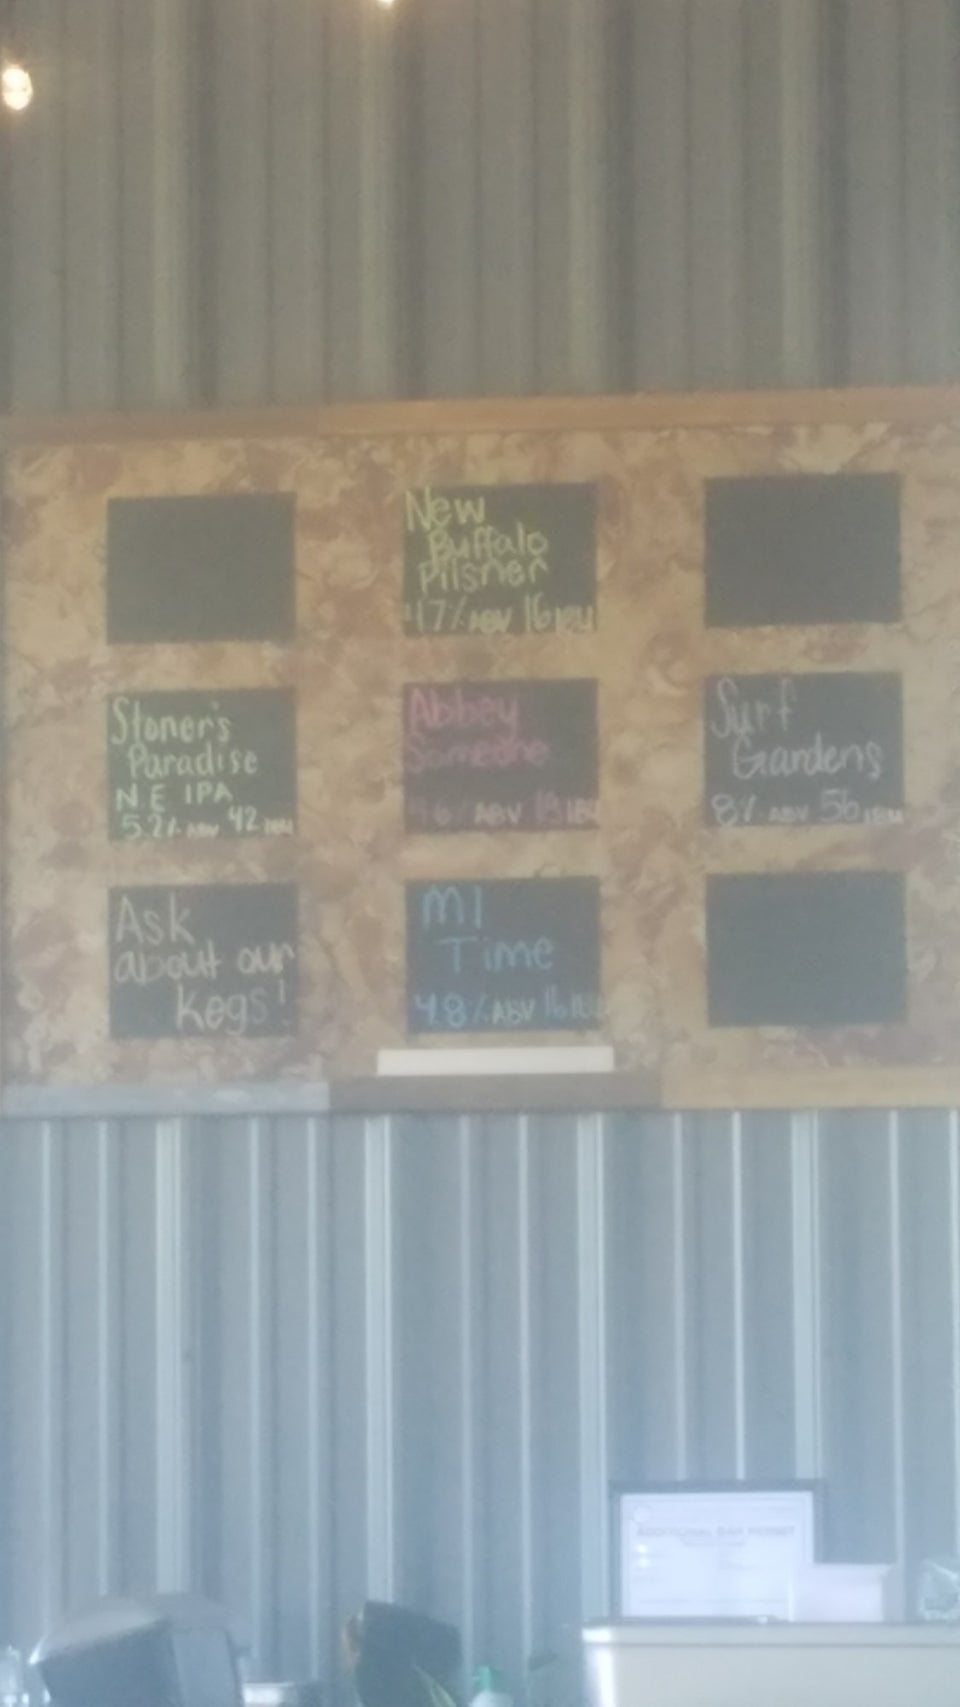 New
Buffalo
Pilsner
4.7% ABV 16 IBU
Stoner's
Paradise
N.E. IPA
5.2% ABV 42 IBU
Abbey
Someone
ABV 18 IBU
Surf
Gardens
8% ABV 56 IBU
Ask
about our
kegs!
MI
Time
4.8% ABV 16 IBU
ADDITIONAL BAR PERMIT